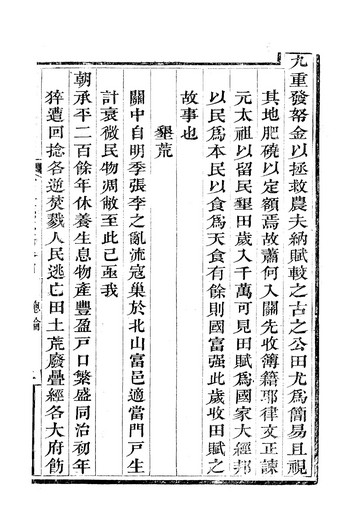 九重發帑金以拯救農夫納賦較之古之公田尤爲簡易且視
其地肥磽以定額焉故蕭何入關先收簿籍耶律文正諫
元太祖以留民墾田歲入千萬可見田賦爲國家大經邦
以民爲本民以食爲天食有餘則國富强此歲收田賦之
故事也
墾荒
關中自明季張李之亂流寇巢於北山富邑適當門戸生
計衰微民物凋敝至此已亟我
朝承平二百餘年休養生息物產豐盈戸口繁盛同治初年
猝遭回捻各逆焚戮人民逃亡田土荒廢疊經各大府飭
總論